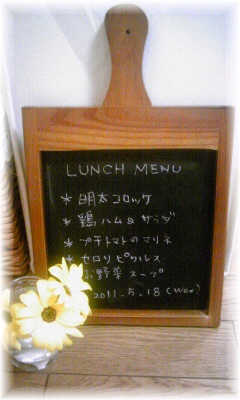 LUNCH MENU
* 明太コロッケ
* 鶏ハム&サラダ
* プチトマトのマリネ
* セロリピクルス
野菜スープ
2011.5.18(Wed)